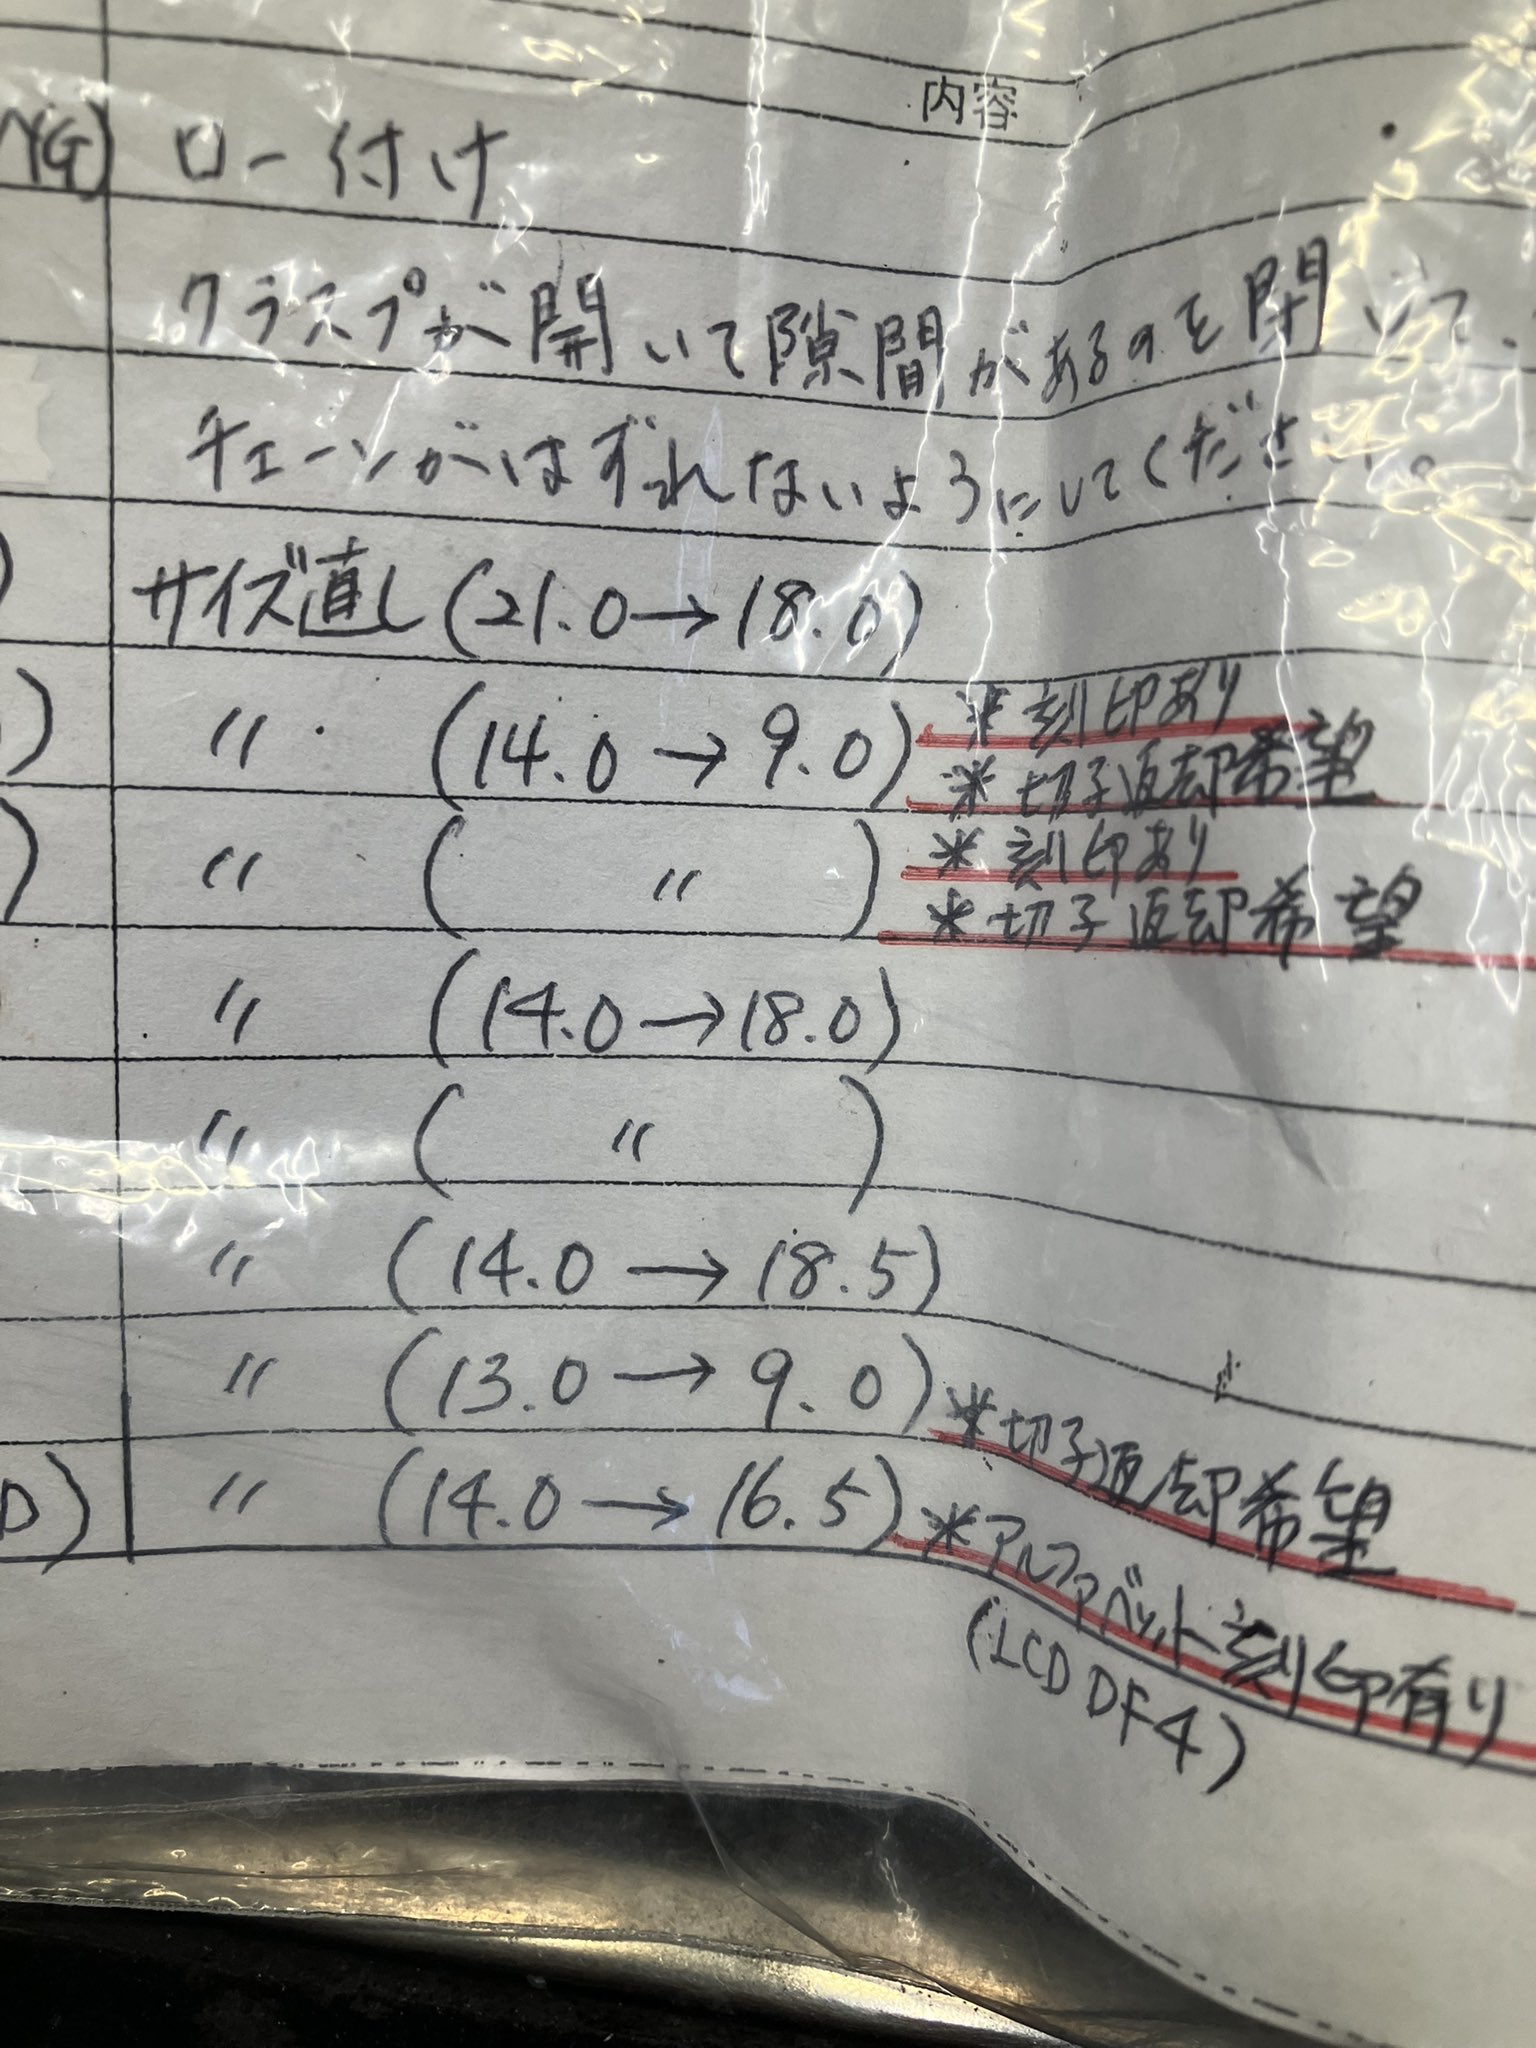 内容
NG) ロー付け
クラスプが開いて隙間があるのを閉いて、
チェーンがはずれないようにしてください。
) サイズ直し (21.0→18.0)
) 〃 (14.0→9.0) ※刻印あり
※切子返却希望
) 〃 ( 〃 ) ※刻印あり
※切子返却希望
〃 (14.0→18.0)
〃 ( 〃 )
〃 (14.0→18.5)
〃 (13.0→9.0) ※切子返却希望
D) 〃 (14.0→16.5) ※アルファベット刻印有り
(LCD DF4)